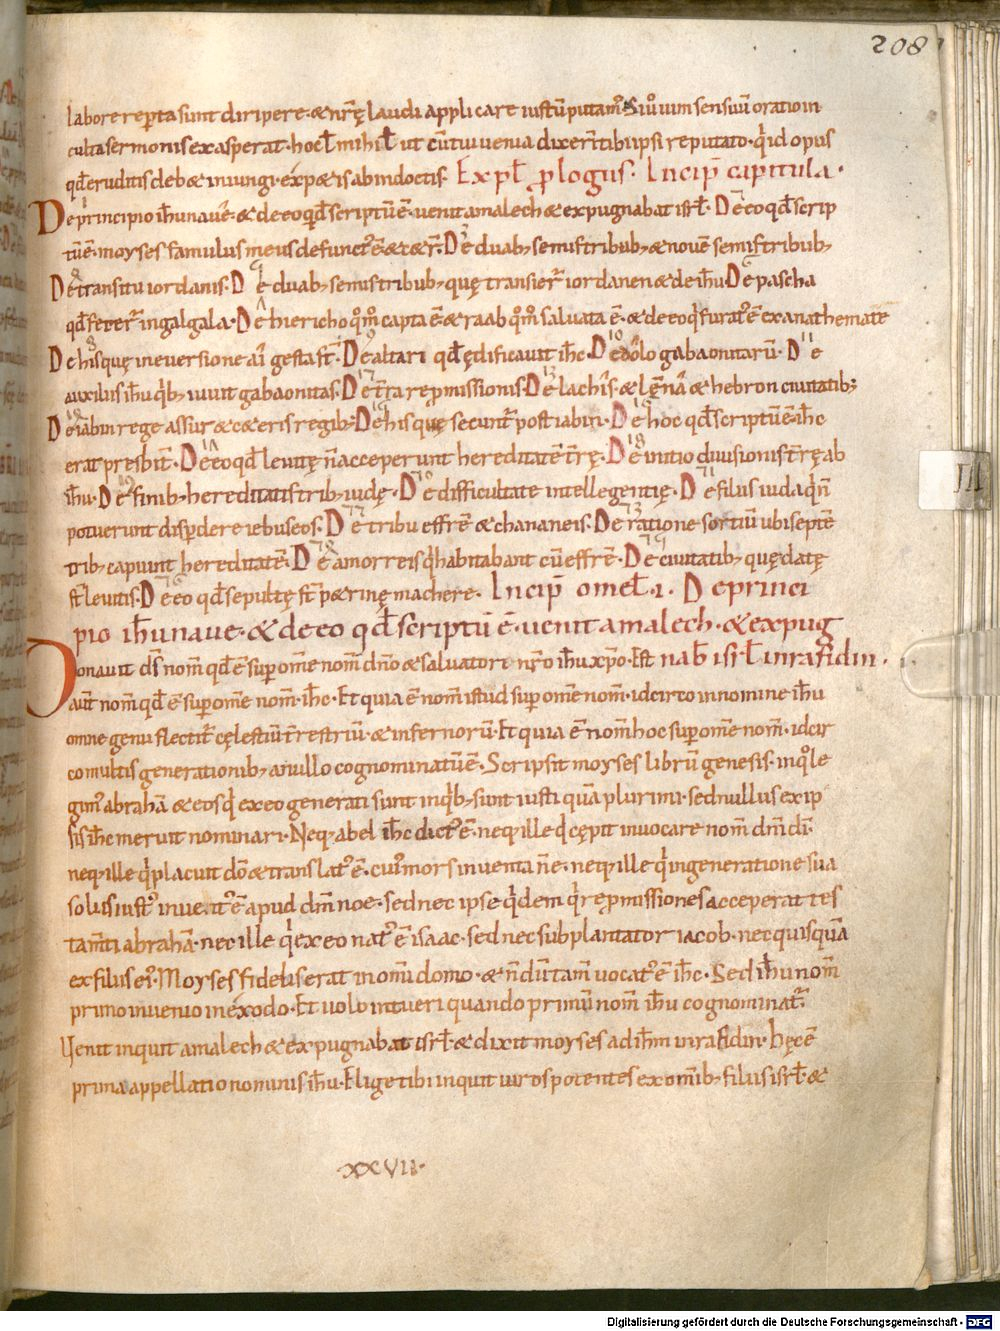 208
labore reperta sunt diripere & nr̄ę laudi applicare iustū putam̄. Si uº uim sensuū oratio in
culta sermonis exasperat. hoc ł mihi ł ut cū tui uenia dixerī tibi ipsi reputato. qͥd opus
qđ eruditis deb& iniungi. exp&is ab indoctis. Expł plogus. Incip̄ capitula.
De principio ih̄u naue. & de eo qđ scriptū ē. uenit amalech & expugnabat isrł. De eo qđ scrip
tū ē. moyses famulus meus defunctꝰ ē & c&ēr̄. De duab; semis tribub; & nouē semis tribub;
De transitu iordanis. De duab; semis tribub; quę transier̄ iordanen & de ih̄u. De pascha
qđ fecer̄ in galgala. De hiericho qm̄ō capta ē & raab qm̄ō saluata ē. & de eo qͥ furatꝰ ē ex anathemate
De his quę in euersione ai gesta st̄. De altari qđ ędificauit ih̄c. De dolo gabaonitarū. De
auxiliis ih̄u qͥb; iuuit gabaonitas. De tr̄a repmissionis. De lachis & lēnā & hebron ciuitatib;
De iabin rege assur & c&eris regib; De his quę secunt̄ post iabin. De hoc qđ scriptū ē ih̄c
erat presbit̄. De eo qđ leuitę n̄ acceperunt hereditatē tr̄ę. De initio diuisionis tr̄ę ab
ih̄u. De finib; hereditatis trib; iudę. De difficultate intellegentię. De filiis iuda qͥ n̄
potuerunt disp̄dere iebuseos. De tribu effrē & chananeis. De ratione sortiū ubi septē
trib; capiunt hereditatē. De amorreis qͥ habitabant cū effrē. De ciuitatib; quę datę
st̄ leuitis. De eo qđ sepultę st̄ p&rinę macherę. Incip̄ omeł. i. De princi
pio ih̄u naue. & de eo qđ scriptū ē. uenit amalech. & expug
Donauit dſ nom̄ qđ ē sup om̄e nom̄ dn̄o & saluatori nr̄o ih̄u xp̄o. Est nab̄ isrł in rafidin.
aut̄ nom̄ qđ ē sup om̄e nom̄. ih̄c. Et quia ē nom̄ istud sup om̄e nom̄. idcirco in nomine ih̄u
omne genu flectit̄ cęlestiū tr̄estriū. & infernorū. Et quia ē nom̄ hoc sup om̄e nom̄. idcir
co multis generationib; a nullo cognominatū ē. Scripsit moyses librū genesis. in qͦ le
gim̄ abrahā & eos qͥ ex eo generati sunt in qͥb; sunt iusti quā plurimi. sed nullus ex ip
sis ih̄c meruit nominari. Neq; abel ih̄c dictꝰ ē. neq; ille qͥ cępit inuocare nom̄ dn̄i dī.
neq; ille qͥ placuit dō & translatꝰ ē. cuiꝰ mors inuenta n̄ ē. neq; ille qͥ in generatione sua
solus iustꝰ inuentꝰ ē apud dn̄m noe. sed nec ipse qͥdem qͥ repmissiones acceperat tes
tam̄ti abrahā. nec ille qͥ ex eo natꝰ ē isaac. sed nec subplantator iacob. nec quisquā
ex filiis eiꝰ. Moyses fidelis erat in om̄i domo. & n̄dū tam̄ uocatꝰ ē ih̄c. Sed ih̄u nom̄
primo inuenio in exodo. Et uolo intueri quando primū nom̄ ih̄u cognominat̄
Uenit inquit amalech & expugnabat isrł. & dixit moyses ad ih̄m in rafidin. hęc ē
prima appellatio nominis ih̄u. Elige tibi inquit uiros potentes ex om̄ib; filiis isrł. &
.xxvii.
Digitalisierung gefördert durch die Deutsche Forschungsgemeinschaft - DFG